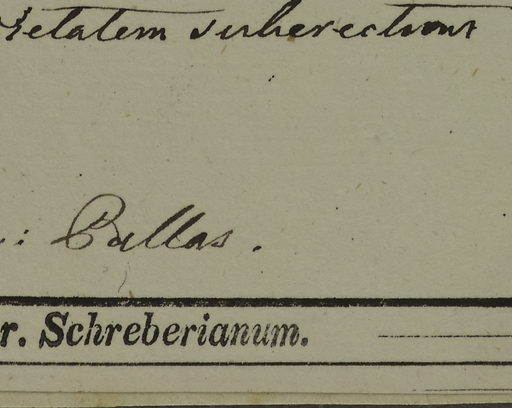 etatem suberectum
: Pallas.
r. Schreberianum.